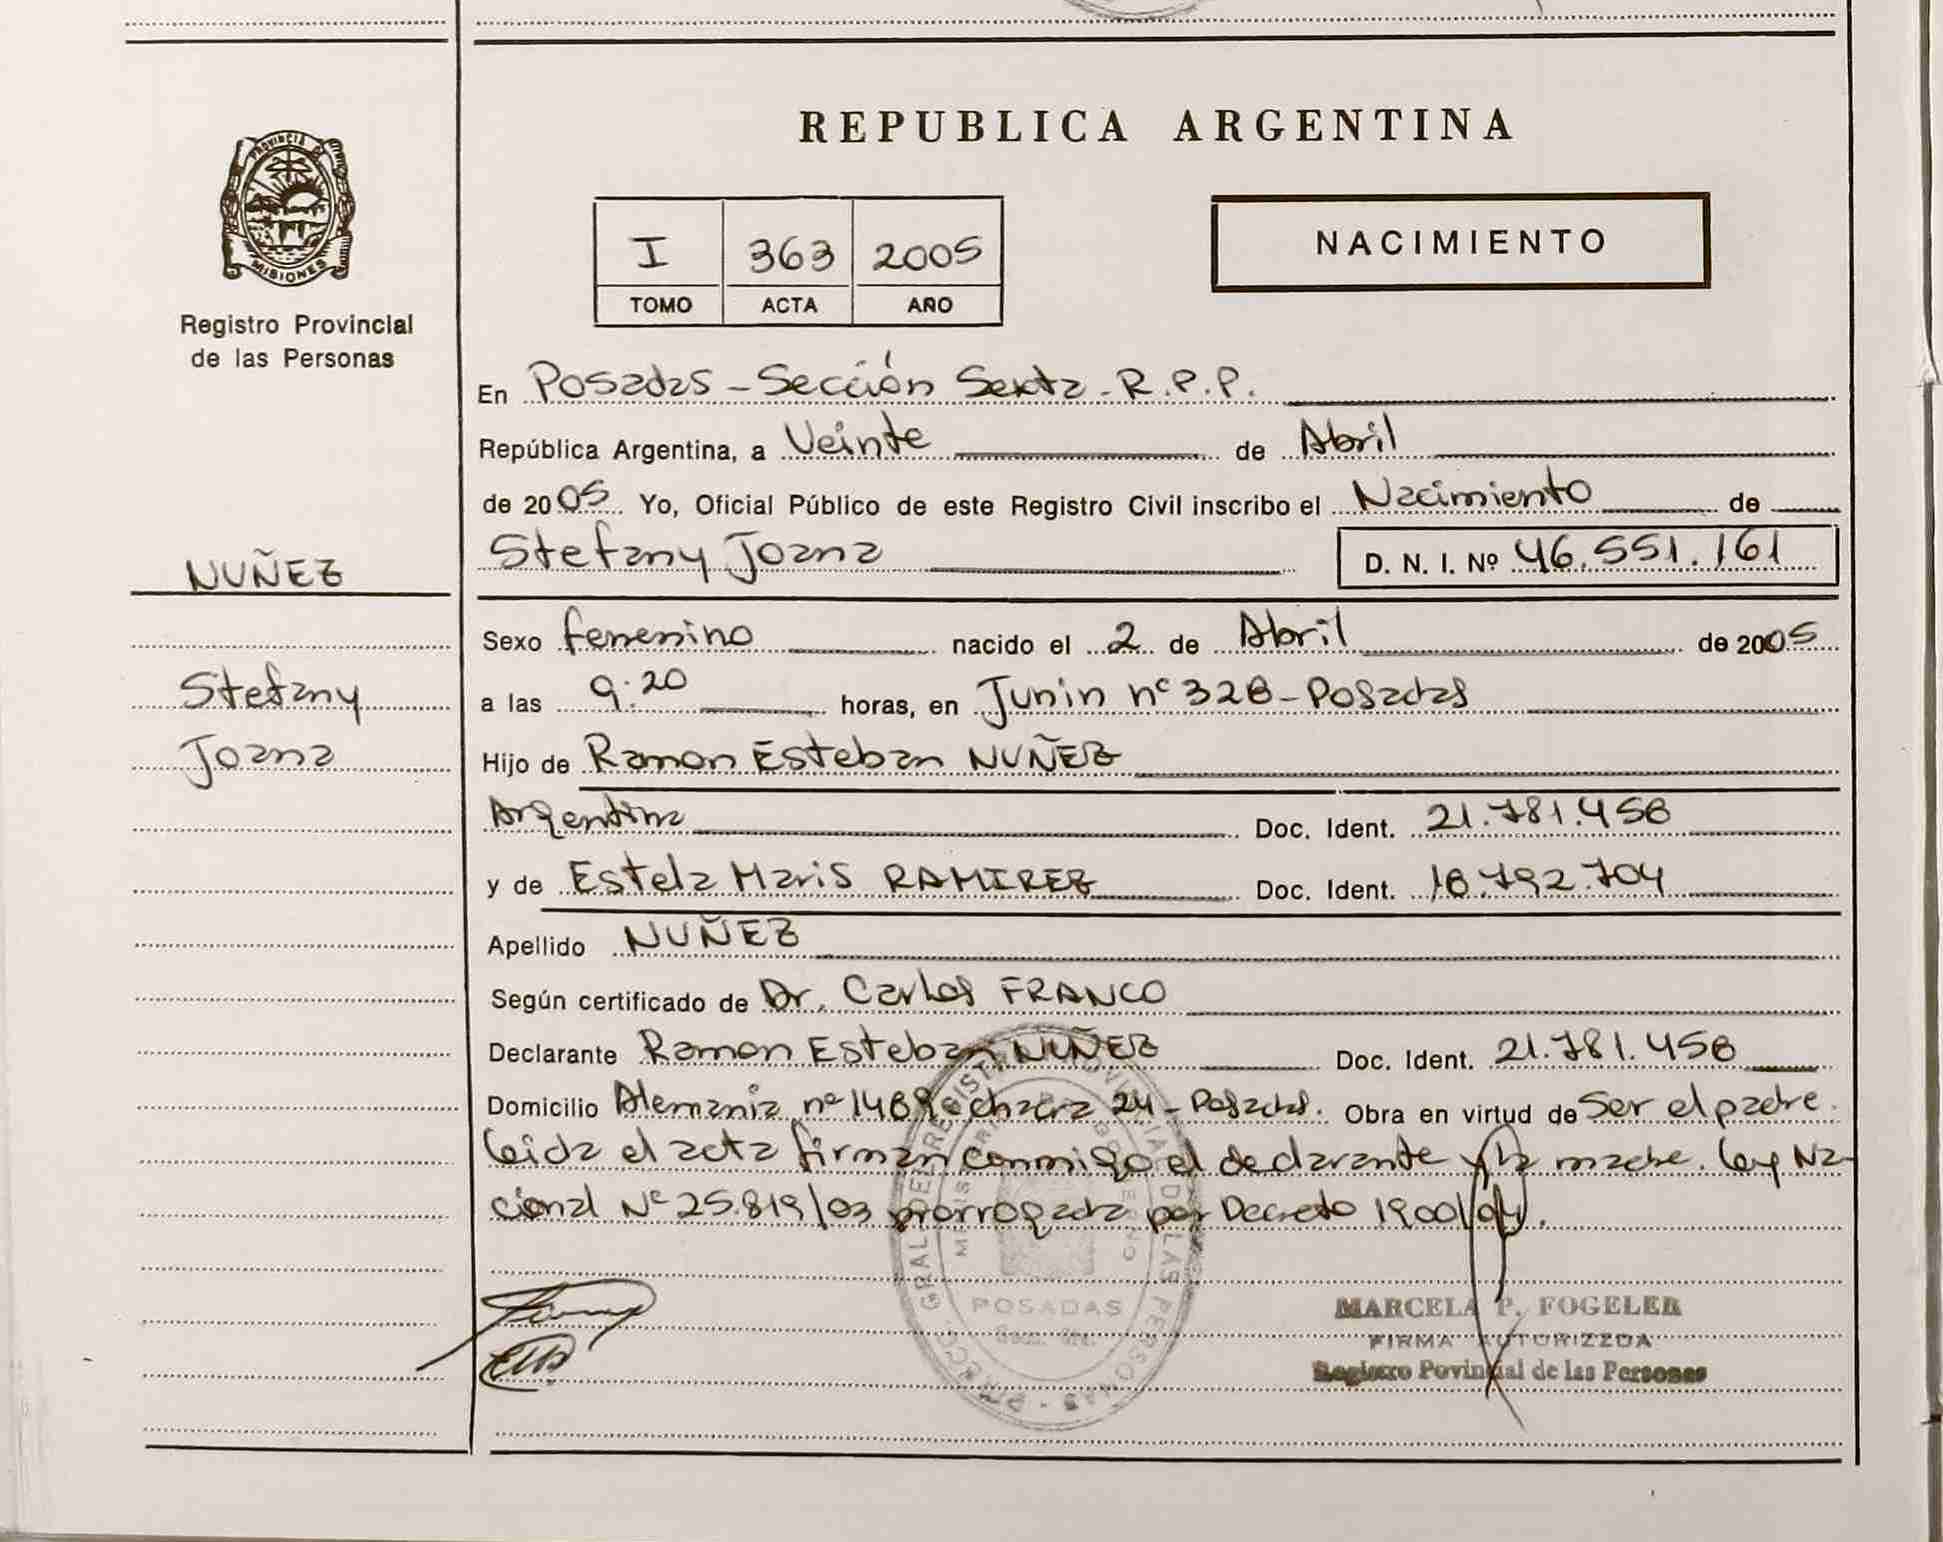 PROVINCIA DE
MISIONES
Registro Provincial
de las Personas
NUÑEZ
Stefany
Joana
REPUBLICA ARGENTINA
I 363 2005
TOMO ACTA AÑO
NACIMIENTO
En Posadas - Sección Sexta - R.P.P.
República Argentina, a Veinte de Abril
de 2005 Yo, Oficial Público de este Registro Civil inscribo el Nacimiento de
Stefany Joana D. N. I. Nº 46.551.161
Sexo femenino nacido el 2 de Abril de 2005
a las 9:20 horas, en Junin nº 328 - Posadas
Hijo de Ramon Esteban NUÑEZ
Argentina Doc. Ident. 21.781.458
y de Estela Maris RAMIREZ Doc. Ident. 18.792.704
Apellido NUÑEZ
Según certificado de Dr. Carlos FRANCO
Declarante Ramon Esteban NUÑEZ Doc. Ident. 21.781.458
Domicilio Alemania nº chacra 24 - Posadas. Obra en virtud de Ser el padre.
leida el acta firman conmigo el declarante y la madre. Ley Na-
cional Nº 25.819/03 prorrogada por Decreto 1900/04.
POSADAS
MARCELA P. FOGELER
FIRMA AUTORIZZDA
Registro Povincial de las Personas